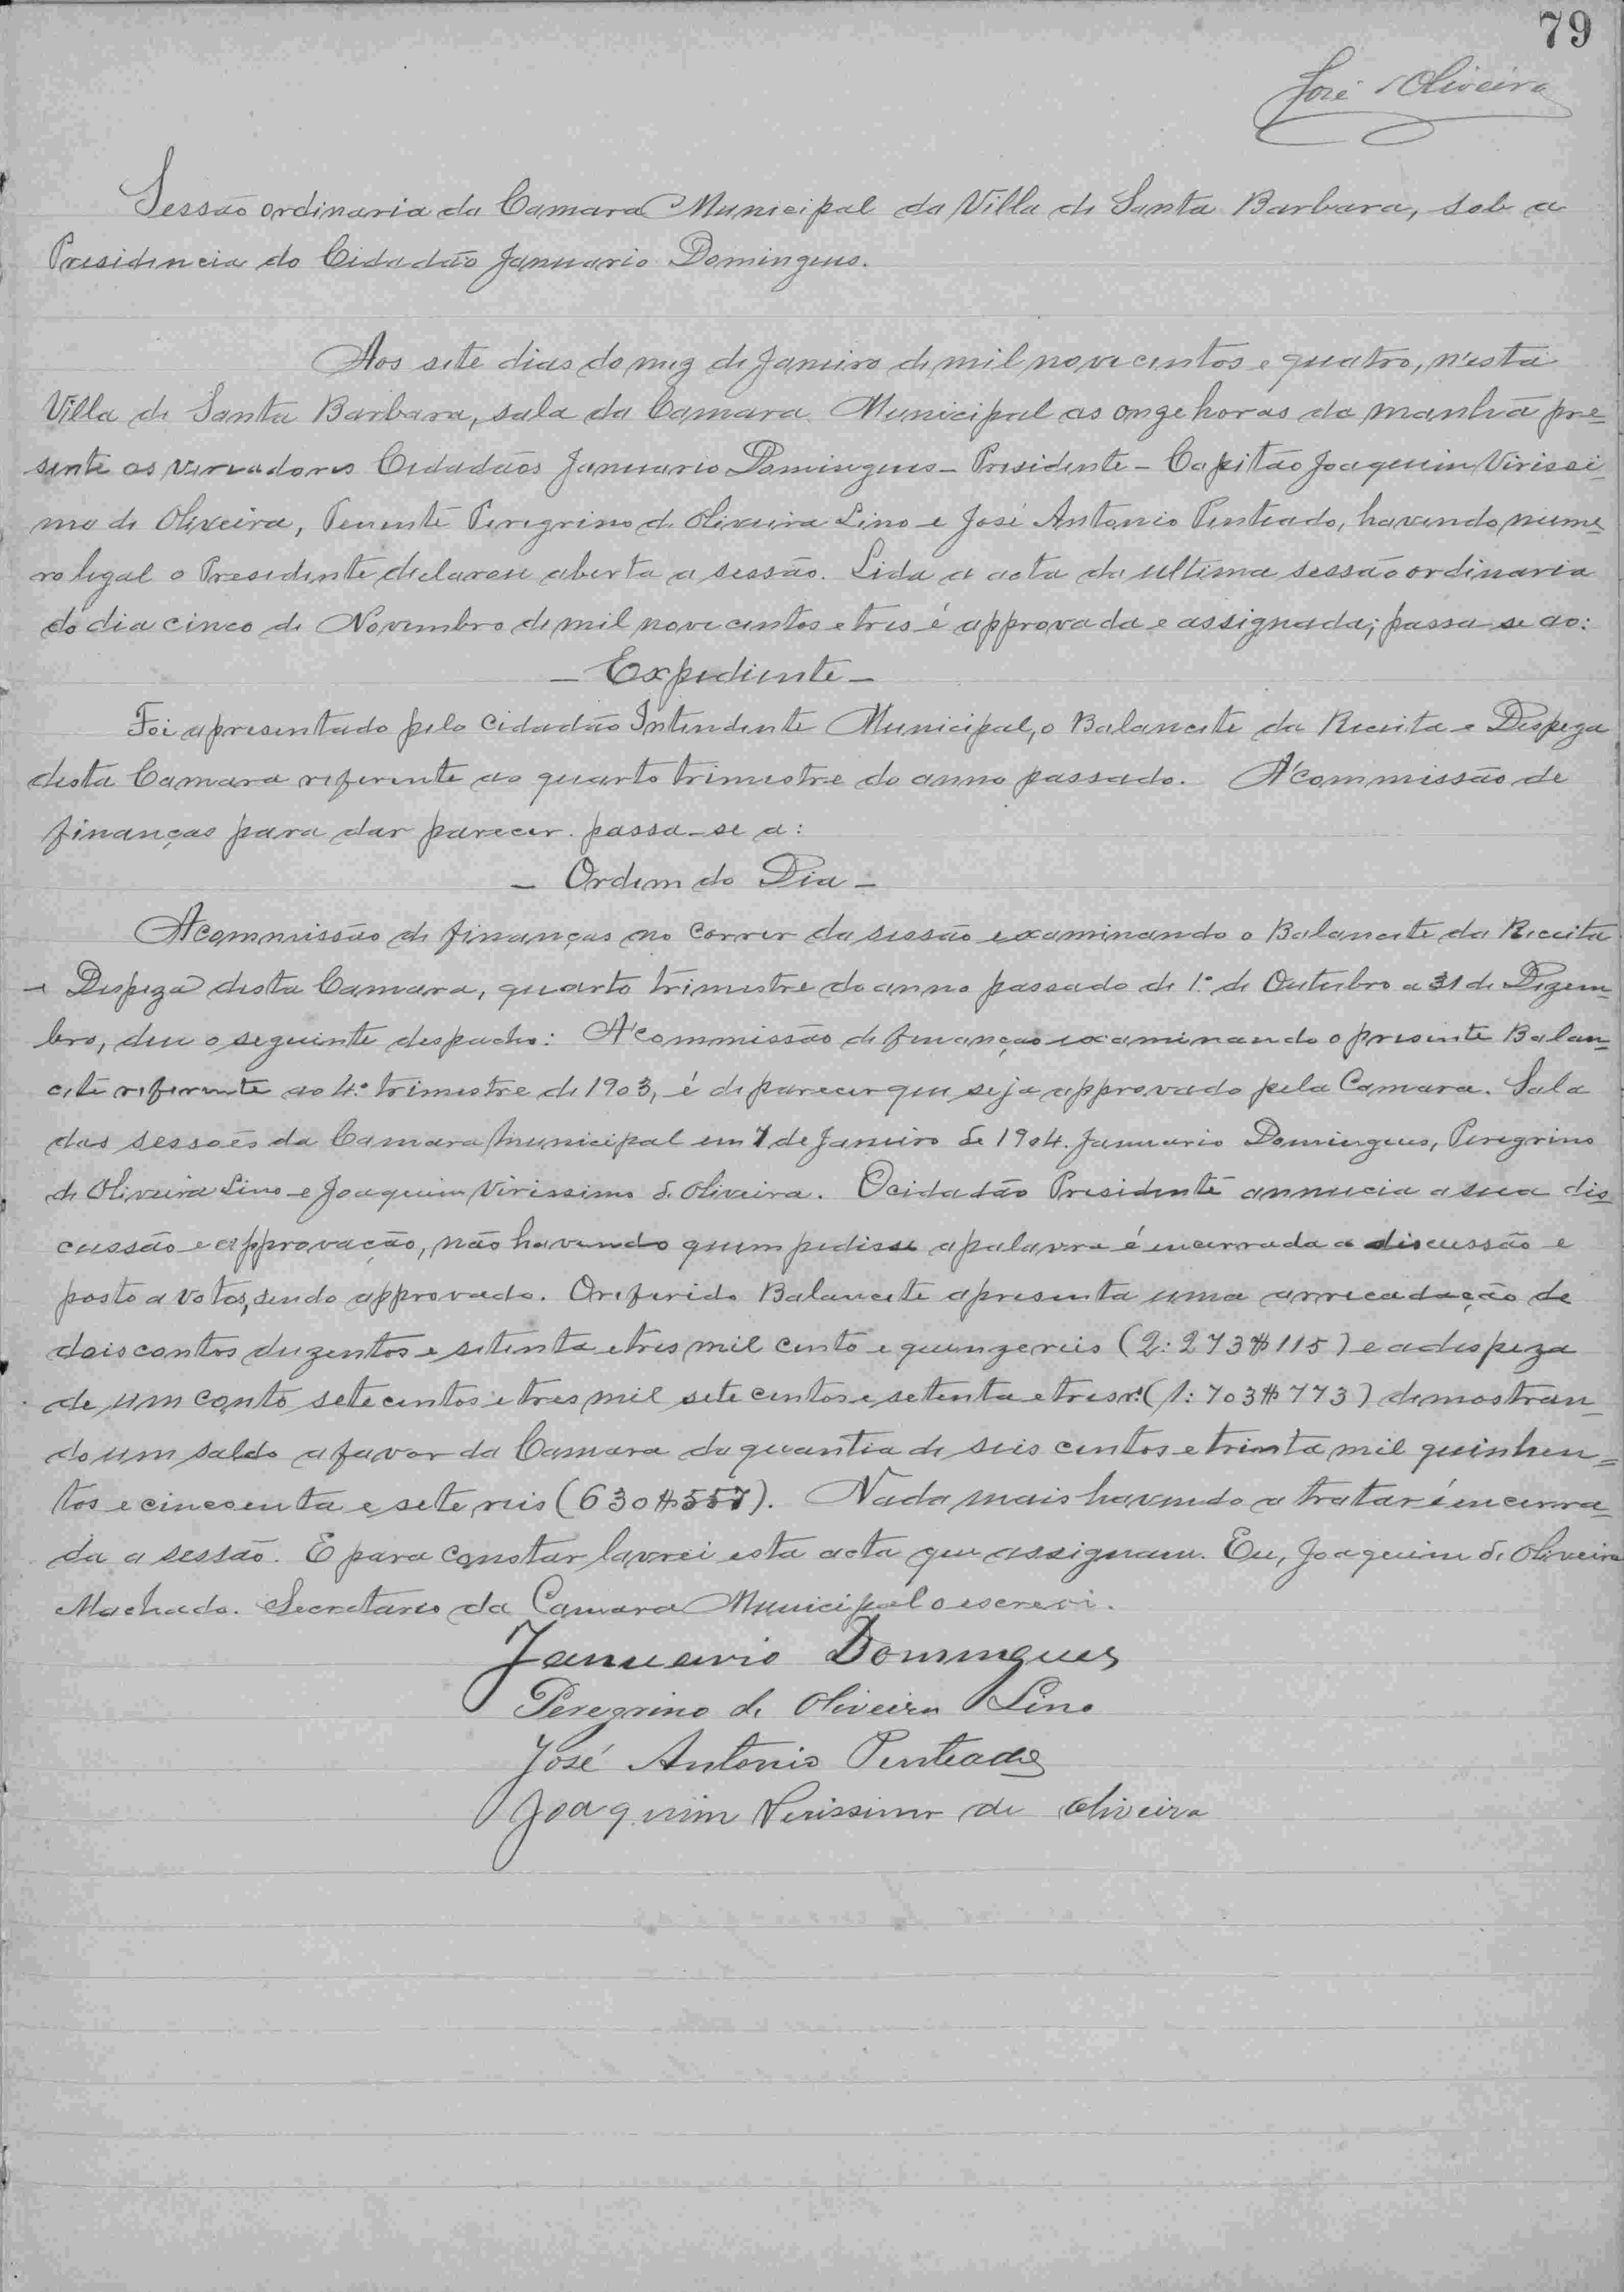 79
José Oliveira
Sessão ordinaria da Camara Municipal da Villa de Santa Barbara, sob a
Presidencia do Cidadão Januario Domingues.
Aos sete dias do mez de Janeiro de mil nove centos e quatro, n'esta
Villa de Santa Barbara, sala da Camara Municipal as onze horas da manhã pre-
sente os vereadores Cidadãos Januario Domingues - Presidente - Capitão Joaquim Virissi-
mo de Oliveira, Tenente Peregrino de Oliveira Lino e José Antonio Penteado, havendo nume-
ro legal o Presidente declarou aberta a sessão. Lida a acta da ultima sessão ordinaria
do dia cinco de Novembro de mil nove centos e tres é approvada e assignada; passa-se ao:
- Expediente -
Foi apresentado pelo Cidadão Intendente Municipal, o Balancete da Receita e Despeza
desta Camara referente ao quarto trimestre do anno passado. A' commissão de
finanças para dar parecer. passa-se a:
- Ordem do Dia -
A commissão de finanças no correr da sessão examinando o Balancete da Receita
e Despeza desta Camara, quarto trimestre do anno passado de 1º de Outubro a 31 de Dezem-
bro, deu o seguinte despacho: A commissão de finanças examinando o presente Balan-
cete referente ao 4º trimestre de 1903, é de parecer que seja approvado pela Camara. Sala
das sessões da Camara Municipal em 7 de Janeiro de 1904. Januario Domingues, Peregrino
de Oliveira Lino e Joaquim Virissimo de Oliveira. O cidadão Presidente annucia a sua dis-
cussão e approvação, não havendo quem pedisse a palavra é encerrada a discussão e
posto a votos, sendo approvado. O referido Balancete apresenta uma arrecadação de
dois contos duzentos e setenta e tres mil cento e quinze reis (2:273$115) e a despeza
de um conto sete centos e tres mil sete centos e setenta e tres r.s (1:703$773) demostran-
do um saldo a favor da Camara da quantia de seis centos e trinta mil quinhen-
tos e cincoenta e sete reis (630$557). Nada mais havendo a tratar é encerra-
da a sessão. E para constar lavrei esta acta que assignam. Eu, Joaquim de Oliveira
Machado. Secretario da Camara Municipal o escrevi.
Januario Domingues
Peregrino de Oliveira Lino
José Antonio Penteado
Joaquim Verissimo de Oliveira